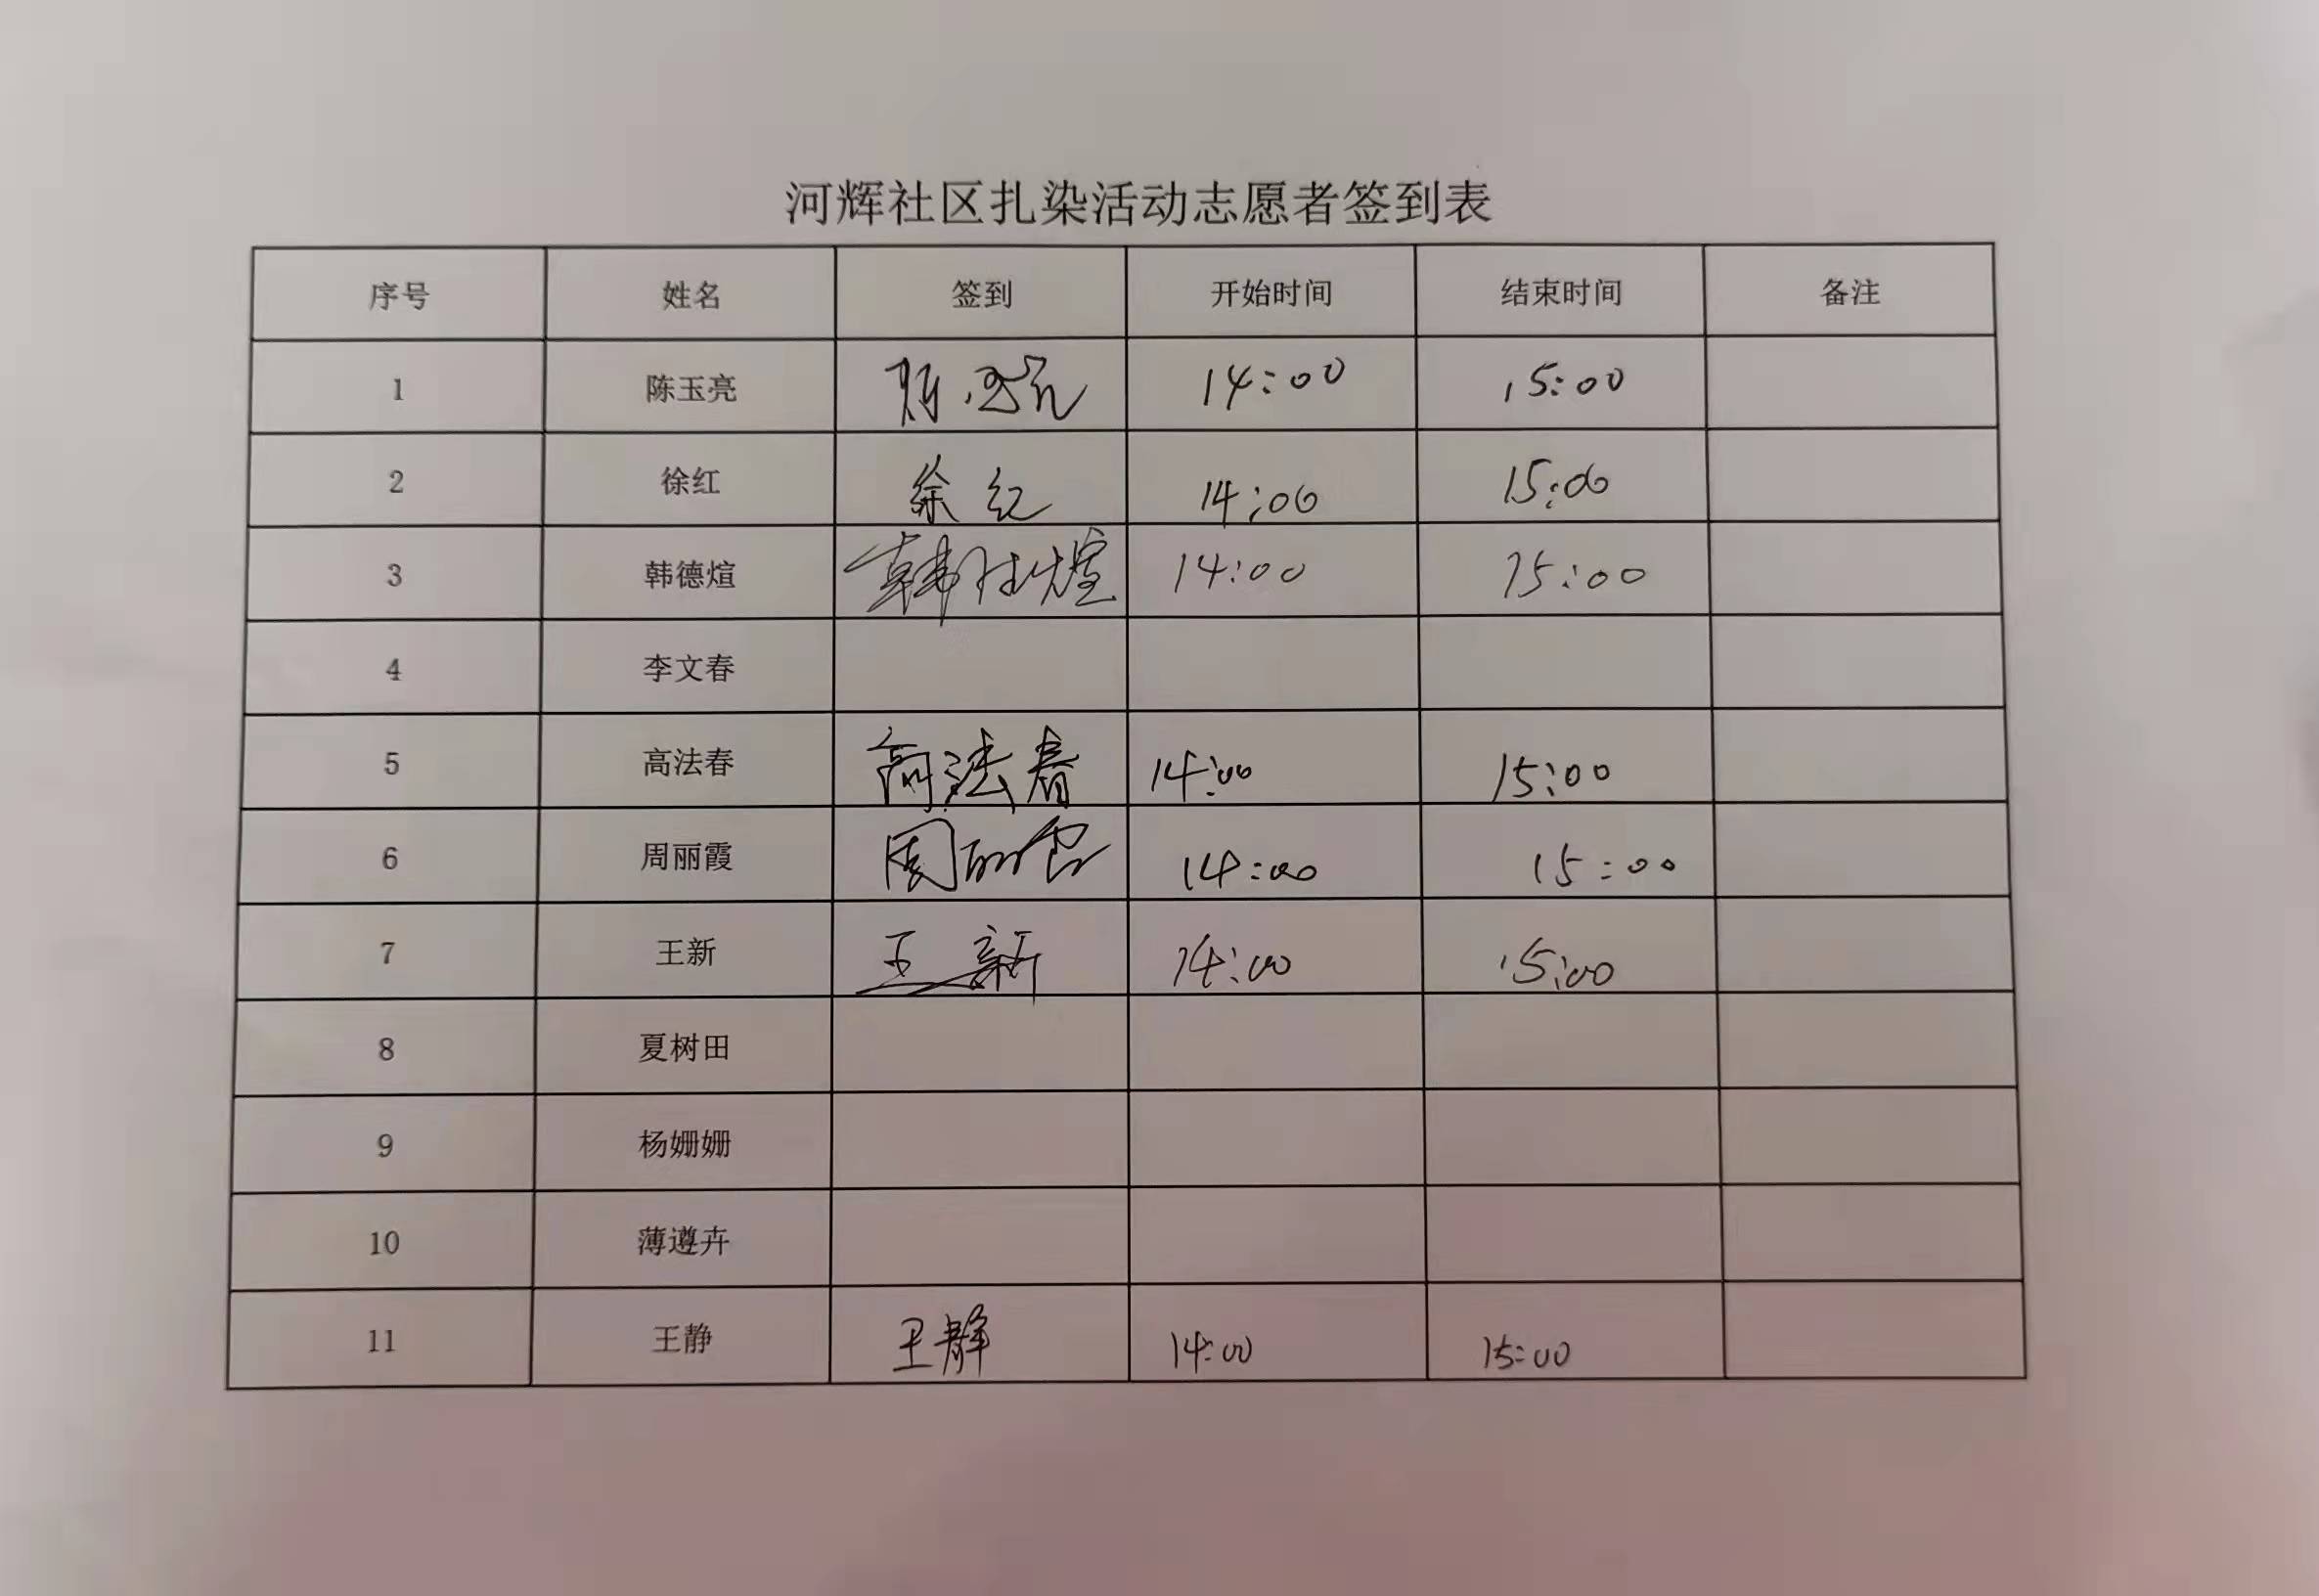 河辉社区扎染活动志愿者签到表
序号 姓名 签到 开始时间 结束时间 备注
1 陈玉亮 陈玉亮 14:00 15:00
2 徐红 徐红 14:00 15:00
3 韩德煊 韩德煊 14:00 15:00
4 李文春
5 高法春 高法春 14:00 15:00
6 周丽霞 周丽霞 14:00 15:00
7 王新 王新 14:00 15:00
8 夏树田
9 杨姗姗
10 薄遵卉
11 王静 王静 14:00 15:00